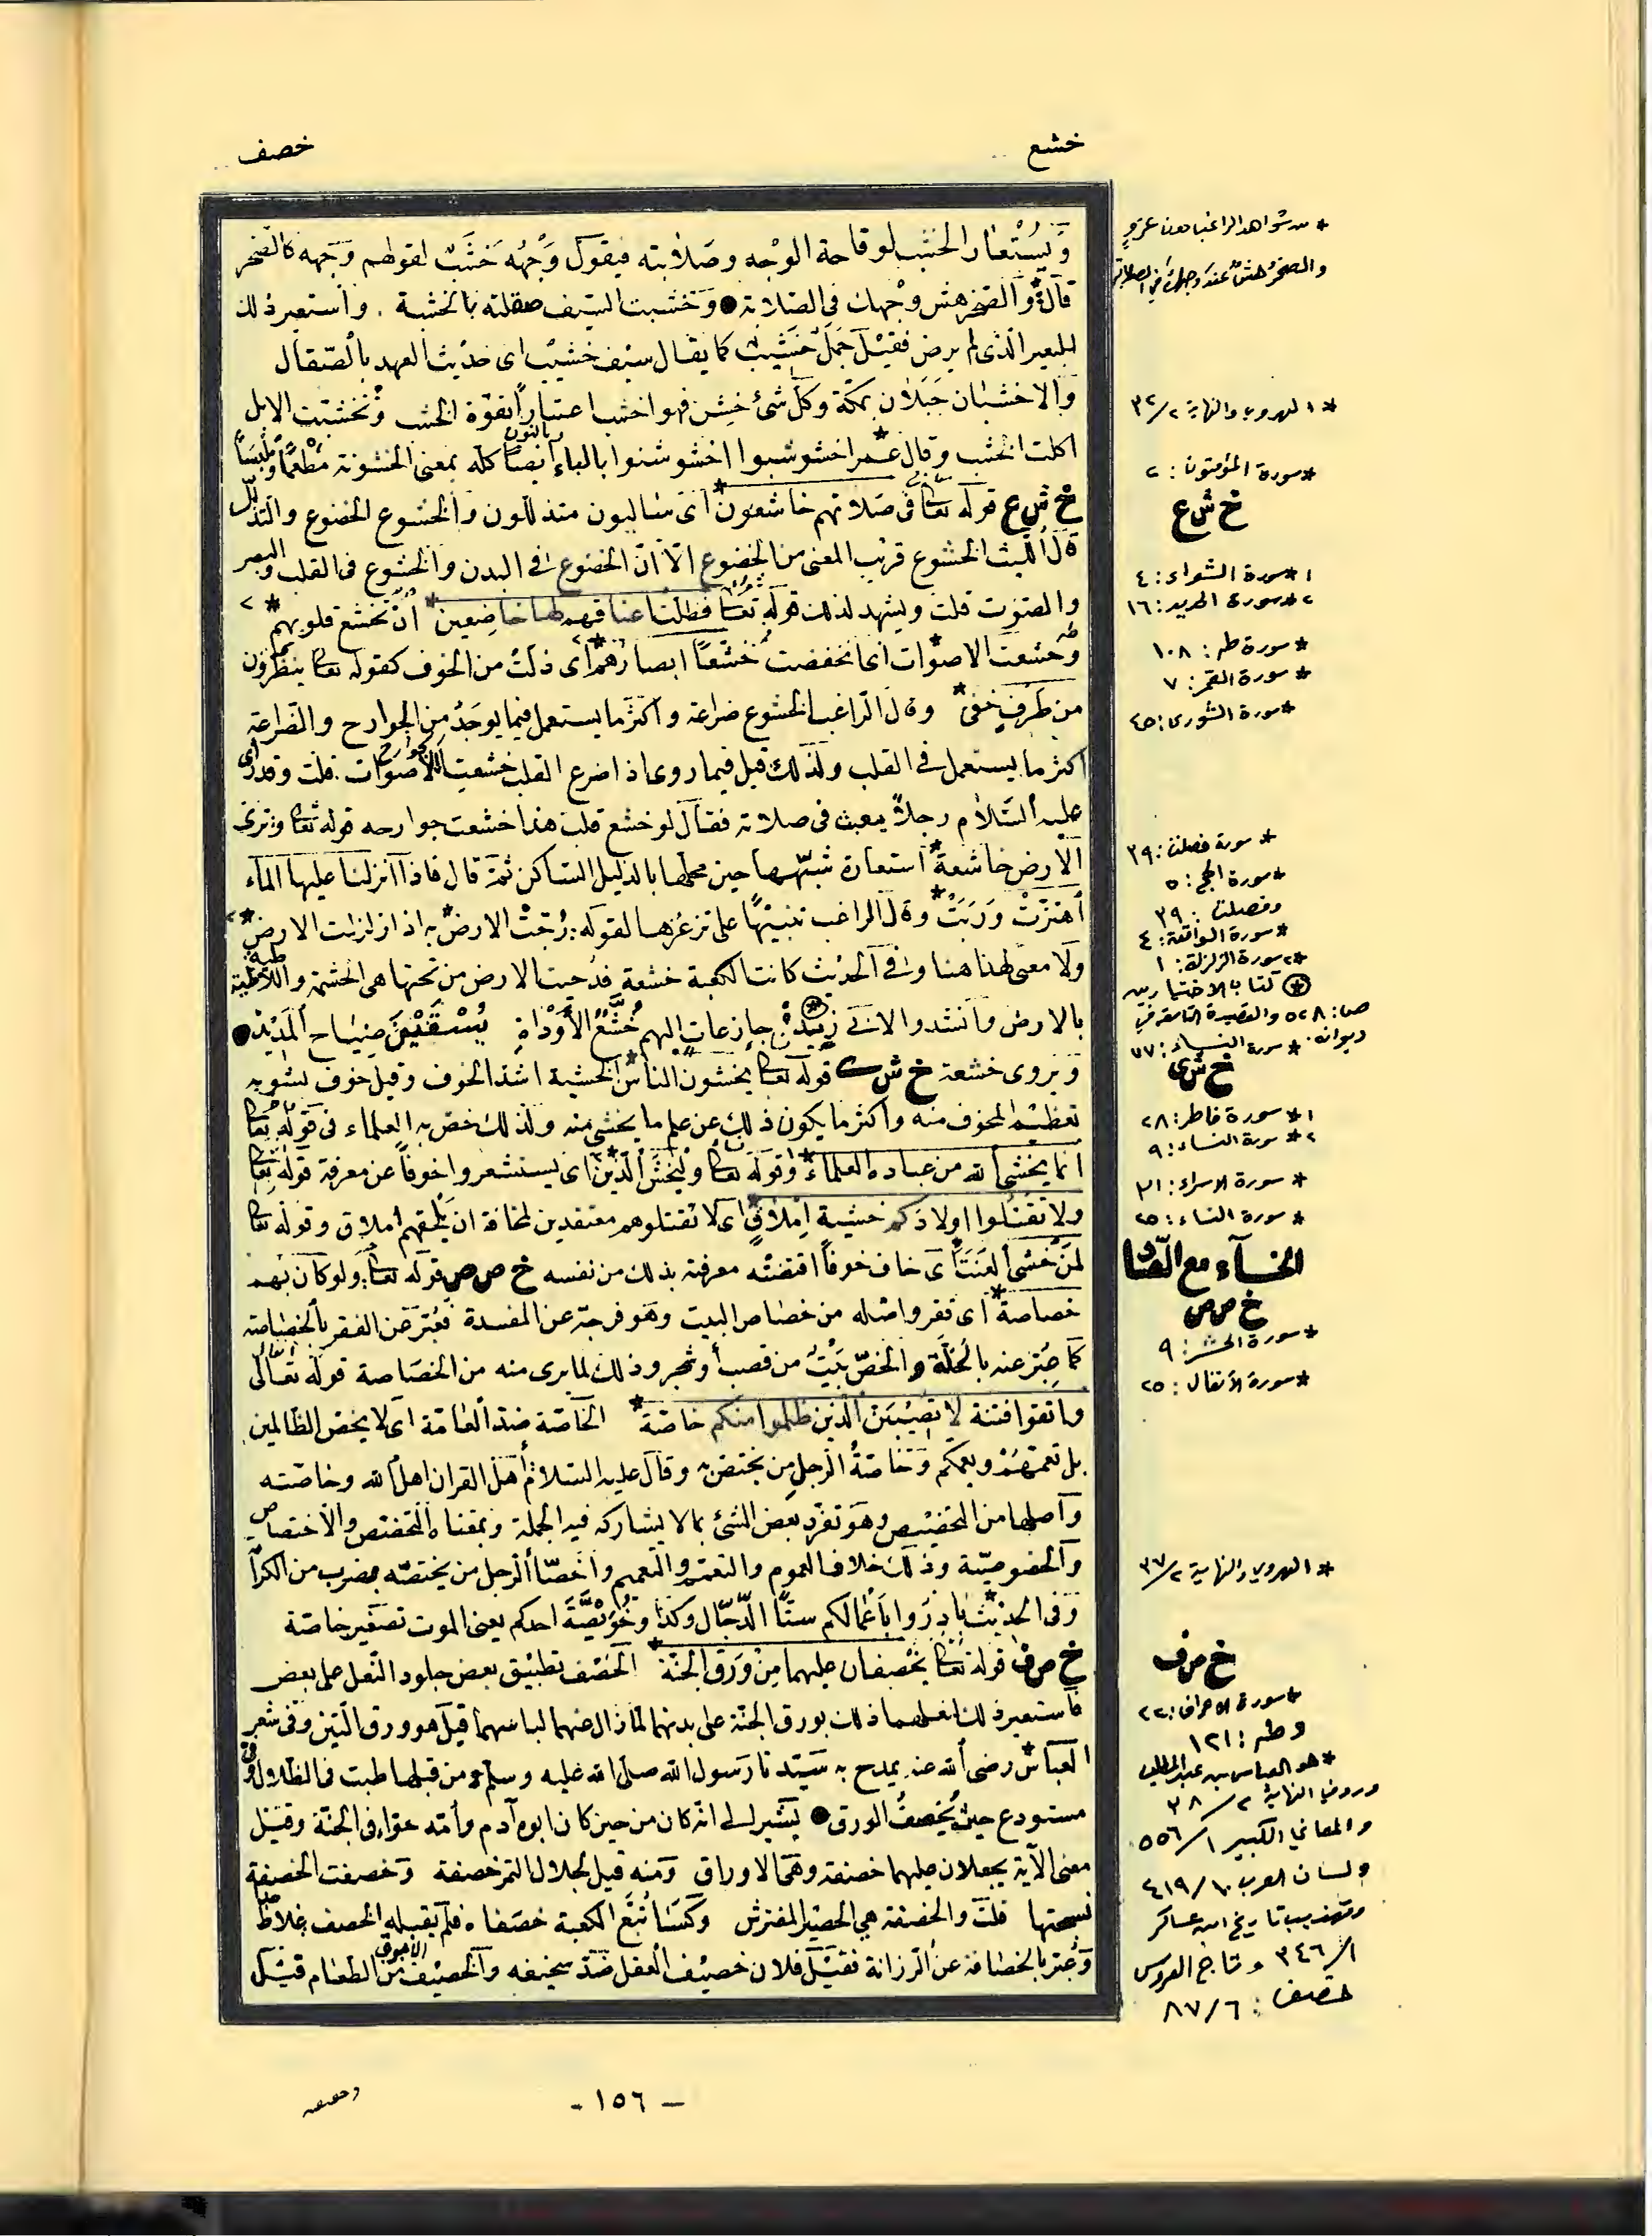 خشع
خصف
ويستعار الخشب لوقاحة الوجه وصلابته فيقول وجهه خشب لقولهم وجهه كالصخر
قال والصخر هش وجهك في الصلابة ● وخشبت السيف صقلته بالخشبة . واستعير ذلك
للبعير الذي لم يرض فقيل جمل خشيب كما يقال سيف خشيب اى حديث العهد بالصقال
والاخشبان جبلان بمكة وكل شئ خشن فهو اخشب اعتباراً بقوة الخشب وتخشبت الابل
اكلت الخشب وقال عمر* اخشوشبوا اخشوشنوا بالباء وبالنون ايضاً كله بمعنى الخشونة مطعماً وملبساً
خ ش ع قوله تعالى في صلاتهم خاشعون* اى متذللون والخشوع الخضوع والتذلل
قال الليث الخشوع قريب المعنى من الخضوع الا ان الخضوع في البدن والخشوع في القلب والبصر
والصوت قلت ويشهد لذلك قوله تعالى فظلت اعناقهم لها خاضعين* أن تخشع قلوبهم*٢
وخشعت الاصوات* اى انخفضت خشعاً ابصارهم* اى ذلت من الخوف كقوله تعالى ينظرون
من طرف خفي* وقال الراغب الخشوع ضراعة واكثر ما يستعمل فيما يوجد من الجوارح والضراعة
اكثر ما يستعمل في القلب ولذلك قيل فيما روى اذا ضرع القلب خشعت الجوارح قلت وقد رأى
عليه السلام رجلاً يعبث في صلاته فقال لو خشع قلب هذا خشعت جوارحه قوله تعالى وترى
الارض خاشعة* استعارة شبهها حين محلها بالذليل الساكن ثمة قال فاذا انزلنا عليها الماء
اهتزت وربت* وقال الراغب تنبيهاً على تزعزعها لقوله: رجت الارض* : اذا زلزلت الارض*٢
ولا معنى لهذا هنا وفي الحديث كانت الكعبة خشعة فدحيت الارض من تحتها هى الخشمة واللاطية
بالارض وانشدوا لابي زبيد: جازعات اليهم خشع الأوداة يسقين ضياح المديد ●
ويروى خشعة خ ش ى قوله تعالى يخشون الناس* الخشية اشد الخوف وقيل خوف يشوبه
تعظيم المخوف منه واكثر ما يكون ذلك عن علم ما يخشى منه ولذلك خص به العلماء في قوله تعالى
انما يخشى الله من عباده العلماء* وقوله تعالى وليخش الذين* اى يستشعروا خوفاً عن معرفة قوله تعالى
ولا تقتلوا اولادكم خشية املاق* اى لا تقتلوهم معتقدين لمخافة ان يلحقهم املاق وقوله تعالى
لمن خشى العنت* اى خاف خوفاً اقتضته معرفته بذلك من نفسه خ ص ص قوله تعالى: ولو كان بهم
خصاصة* اى فقر واصله من خصاص البيت وهو فرجة عن المفسدة فعبر عن الفقر بالخصاصة
كما عبر عنه بالخلة والخص بيت من قصب أو شجر وذلك لما يرى منه من الخصاصة قوله تعالى
واتقوا فتنة لا تصيبن الذين ظلموا منكم خاصة* الخاصة ضد العامة اى لا يخص الظالمين
بل تعمهم وتعمكم وخاصة الرجل من يختص به وقال عليه السلام أهل القران اهل الله وخاصته
واصلها من التخصيص وهو تفرد بعض الشئ بما لا يشاركه فيه الجملة وبمعناه التخصص والاختصاص
والخصوصية وذلك خلاف العموم والتعمم والتعميم واخصاء الرجل من يختصه بضرب من الكرا
وفى الحديث* بادروا باعمالكم ستاً الدجال وكذا وخويصة احدكم يعني الموت تصغير خاصة
خ ص ف قوله تعالى يخصفان عليهما من ورق الجنة* الخصف تطبيق بعض جلود النعل على بعض
فاستعير ذلك لفعلهما ذلك بورق الجنة على بدنهما لما زال عنهما لباسهما قيل هو ورق التين وفي شعر
العباس* رضى الله عنه يمدح به سيدنا رسول الله صلى الله عليه وسلم من قبلها طبت في الظلال وفى
مستودع حيث يخصف الورق ● يشير الى انه كان من حين كان ابوه آدم وأمه حواء في الجنة وقيل
معنى الآية يجعلان عليهما خصفة وهى الاوراق ومنه قيل لجلال التمر خصفة وخصفت الخصفة
نسجتها قلت والخصفة هي الحصير المفترش وكسا تبع الكعبة خصفاً فلم تقبله الخصف غلاظ
وعبر بالخصافة عن الرزانة فقيل فلان خصيف العقل ضد سخيفه والخصيف من الطعام قيل
* من شواهد الراغب دون عزو
والصخر هش عند وجهك في الصلابة
* الهروي والنهاية ٢/ ٣٢
* سورة المؤمنون: ٢
خ ش ع
١* سورة الشعراء: ٤
٢* سورة الحديد: ١٦
* سورة طه: ١٠٨
* سورة القمر: ٧
* سورة الشورى: ٤٥
* سورة فصلت: ٣٩
* سورة الحج: ٥
وفصلت: ٣٩
* سورة الواقعة: ٤
*٢ سورة الزلزلة: ١
⊛ كتاب الاختيارين
ص: ٥٢٨ والقصيدة التاسعة في
ديوانه. * سورة النساء: ٧٧
خ ش ى
١* سورة فاطر: ٢٨
٢* سورة النساء: ٩
* سورة الاسراء: ٣١
* سورة النساء: ٢٥
الخاء مع الصاد
خ ص ص
* سورة الحشر: ٩
* سورة الأنفال: ٢٥
* الهروي والنهاية ٢/ ٣٧
خ ص ف
* سورة الاعراف: ٢٢
وطه: ١٢١
* هو العباس بن عبد المطلب
وروى النهاية ٢/ ٣٨
والمعاني الكبير ١/ ٥٥٦
ولسان العرب ١٠/ ٤١٩
وتهذيب تاريخ ابن عساكر
١/ ٣٤٦ وتاج العروس
خصف: ٦/ ٨٧
- ١٥٦ -